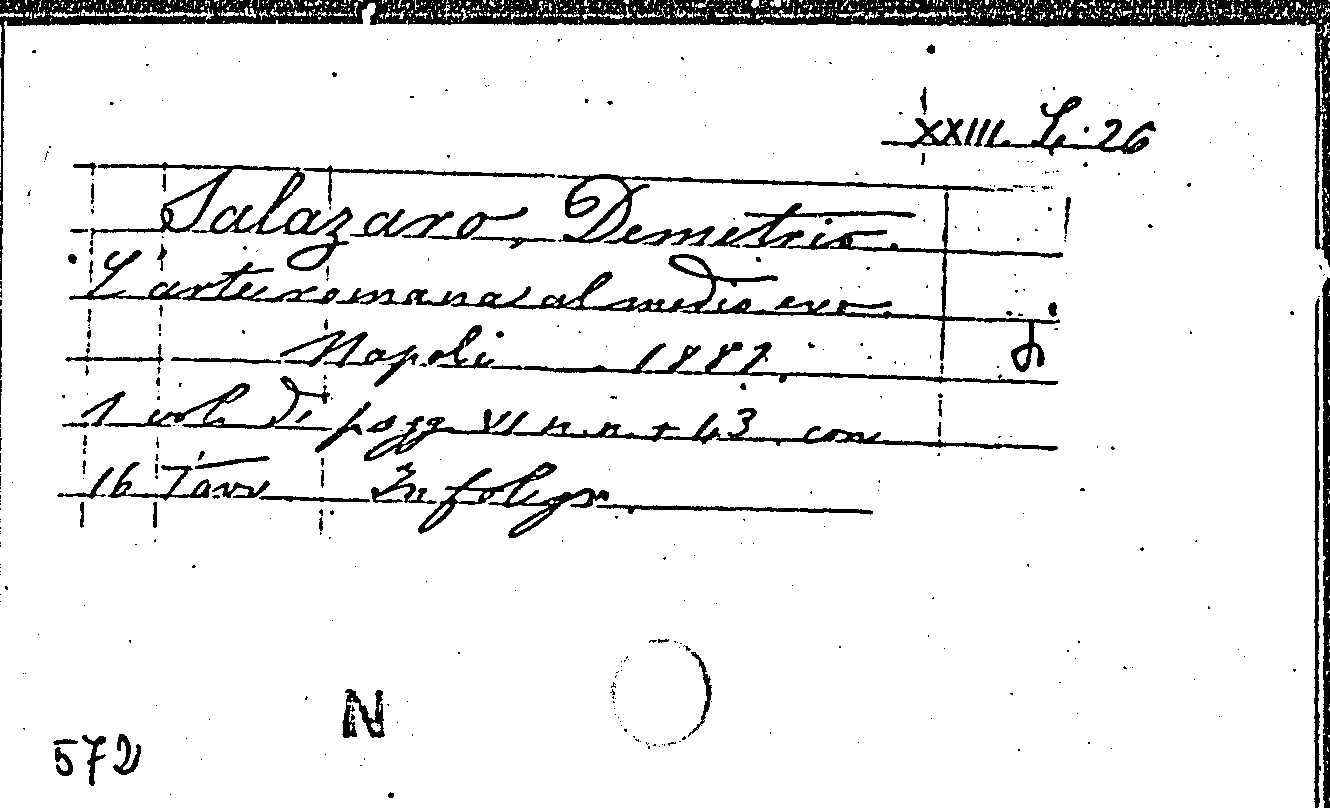 XXIII. L. 26
Salazaro, Demetrio.
L'arte romana al medio evo.
Napoli 1881.
1 vol. di pagg. VI n.n. + 43 con
16 Tavv In fol. gr.
N
572